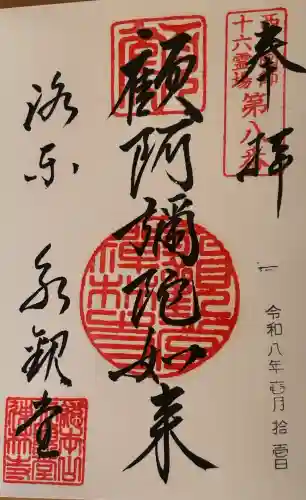 奉拝
西山国師
十六霊場
第八番
顧阿彌陀如来
令和八年壱月拾壱日
洛东 永観堂